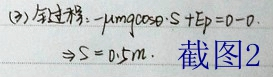 (3) 全过程: -μmgcosθ·S+Ep=0-0.
⇒S=0.5m. 截图2